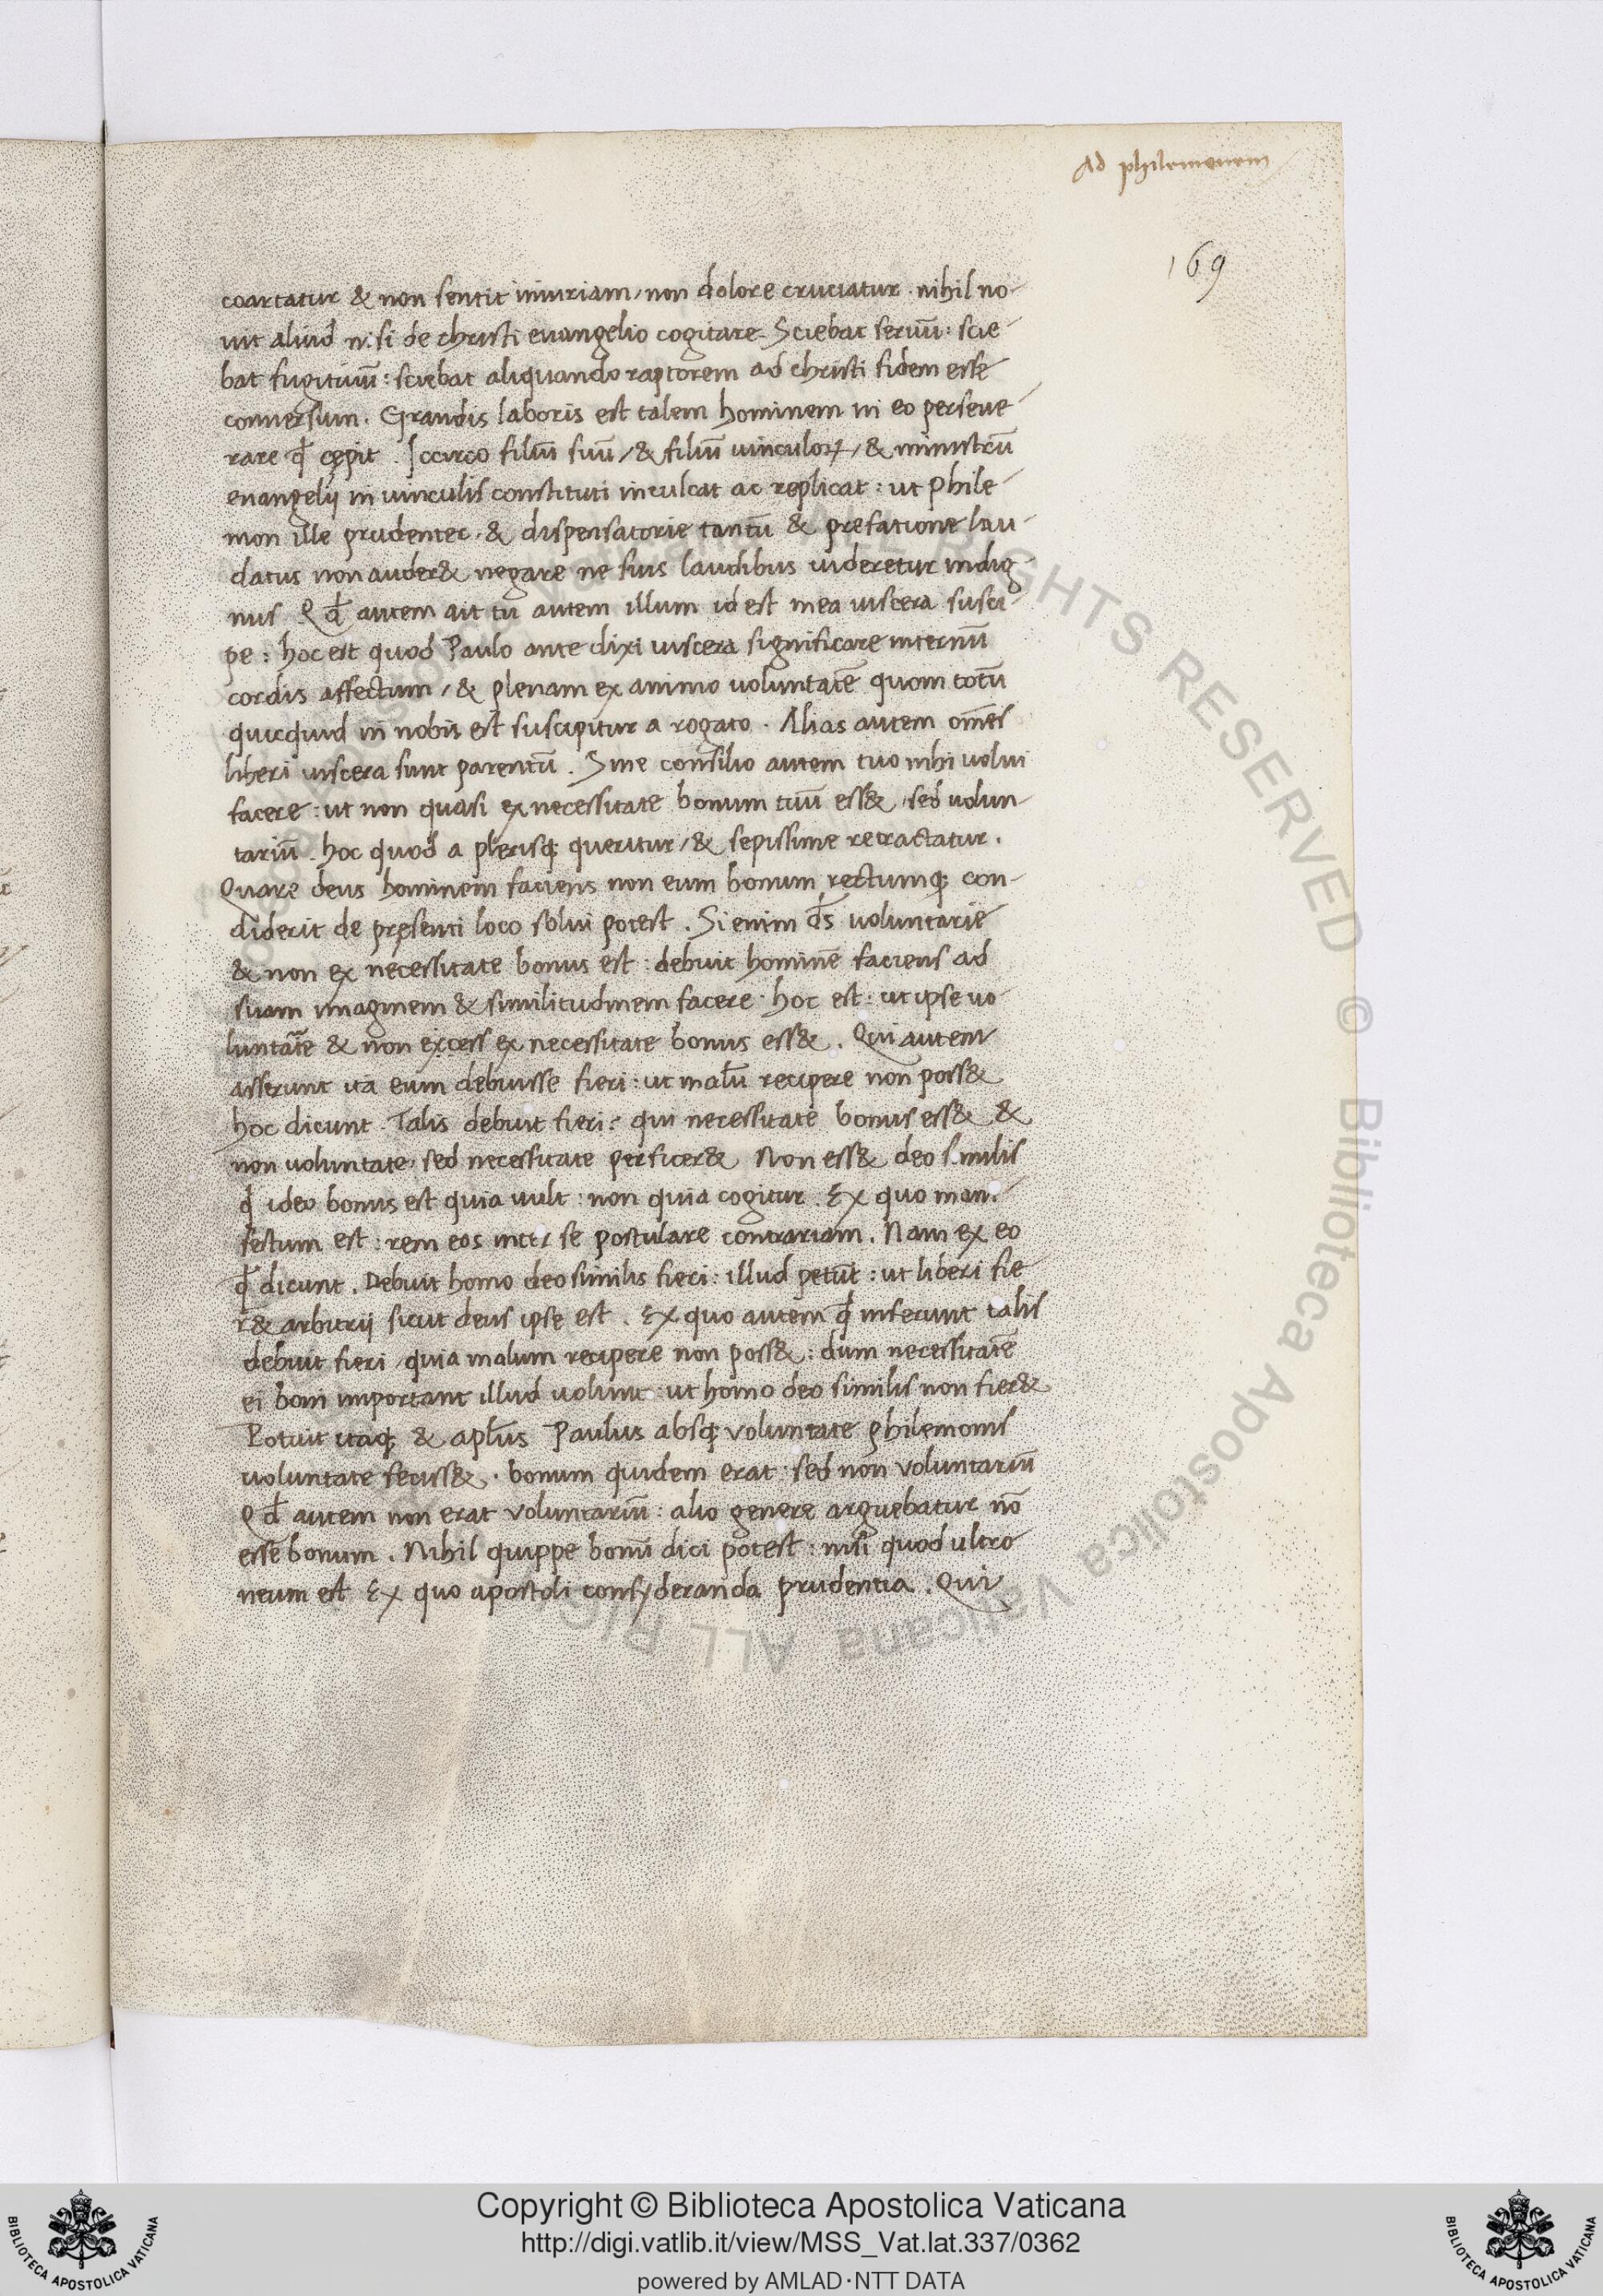 Ad philemonem
169
coartatur & non sentit iniuriam, non dolore cruciatur. nihil no-
uit aliud nisi de christi euangelio cogitare. Sciebat seruū: scie-
bat fugitiuū: sciebat aliquando raptorem ad christi fidem esse
conuersum. Grandis laboris est talem hominem in eo perseue-
rare qđ cępit. Iccirco filiū suū, & filiū uinculoꝝ, & ministrū
euangelij in uinculis constituti inculcat ac replicat: ut phile-
mon ille prudenter, & dispensatorie tantū & prefatione lau-
datus non auder& negare ne suis laudibus uideretur indig-
nus Qđ autem ait tu autem illum id est mea uiscera susci-
pe: hoc est quod Paulo ante dixi uiscera significare internū
cordis affectum, & plenam ex animo voluntatē quom totū
quicquid in nobis est suscipitur a rogato. Alias autem om̄es
liberi uiscera sunt parentū. Sine consilio autem tuo nihi uolui
facere: ut non quasi ex necessitate bonum tuū ess&, sed volun-
tariū. hoc quod a plerisq; queritur, & sepissime retractatur.
Quare deus hominem faciens non eum bonum rectumq; con-
diderit de pręsenti loco solui potest. Si enim d̄s voluntarie
& non ex necessitate bonus est: debuit hominē faciens ad
suam imaginem & similitudinem facere. hoc est: ut ipse uo-
luntate & non excess ex necessitate bonus ess&. Qui autem
asserunt ita eum debuisse fieri: ut malū recipere non poss&
hoc dicunt. Talis debuit fieri: qui necessitate bonus ess& &
non voluntate, sed necessitate perficer& Non ess& deo similis
qđ ideo bonus est quia uult: non quia cogitur. Ex quo mani-
festum est: rem eos int̄ se postulare contrariam. Nam ex eo
qđ dicunt. Debuit homo deo similis fieri: illud petūt: ut liberi fie-
r& arbitrij sicut deus ipse est. Ex quo autem qđ inferunt talis
debuit fieri, quia malum recipere non poss&: dum necessitatē
ei boni important illud uolunt: ut homo deo similis non fier&
Potuit itaq; & apl̄us Paulus absq; voluntate philemonis
uoluntate feciss&. bonum quidem erat: sed non voluntariū
Qđ autem non erat voluntariū: alio genere arguebatur nō
esse bonum. Nihil quippe bonū dici potest: nisi quod ultro
neum est Ex quo apostoli consyderanda prudentia. Qui
Copyright © Biblioteca Apostolica Vaticana
http://digi.vatlib.it/view/MSS_Vat.lat.337/0362
powered by AMLAD·NTT DATA
BIBLIOTECA APOSTOLICA VATICANA
BIBLIOTECA APOSTOLICA VATICANA